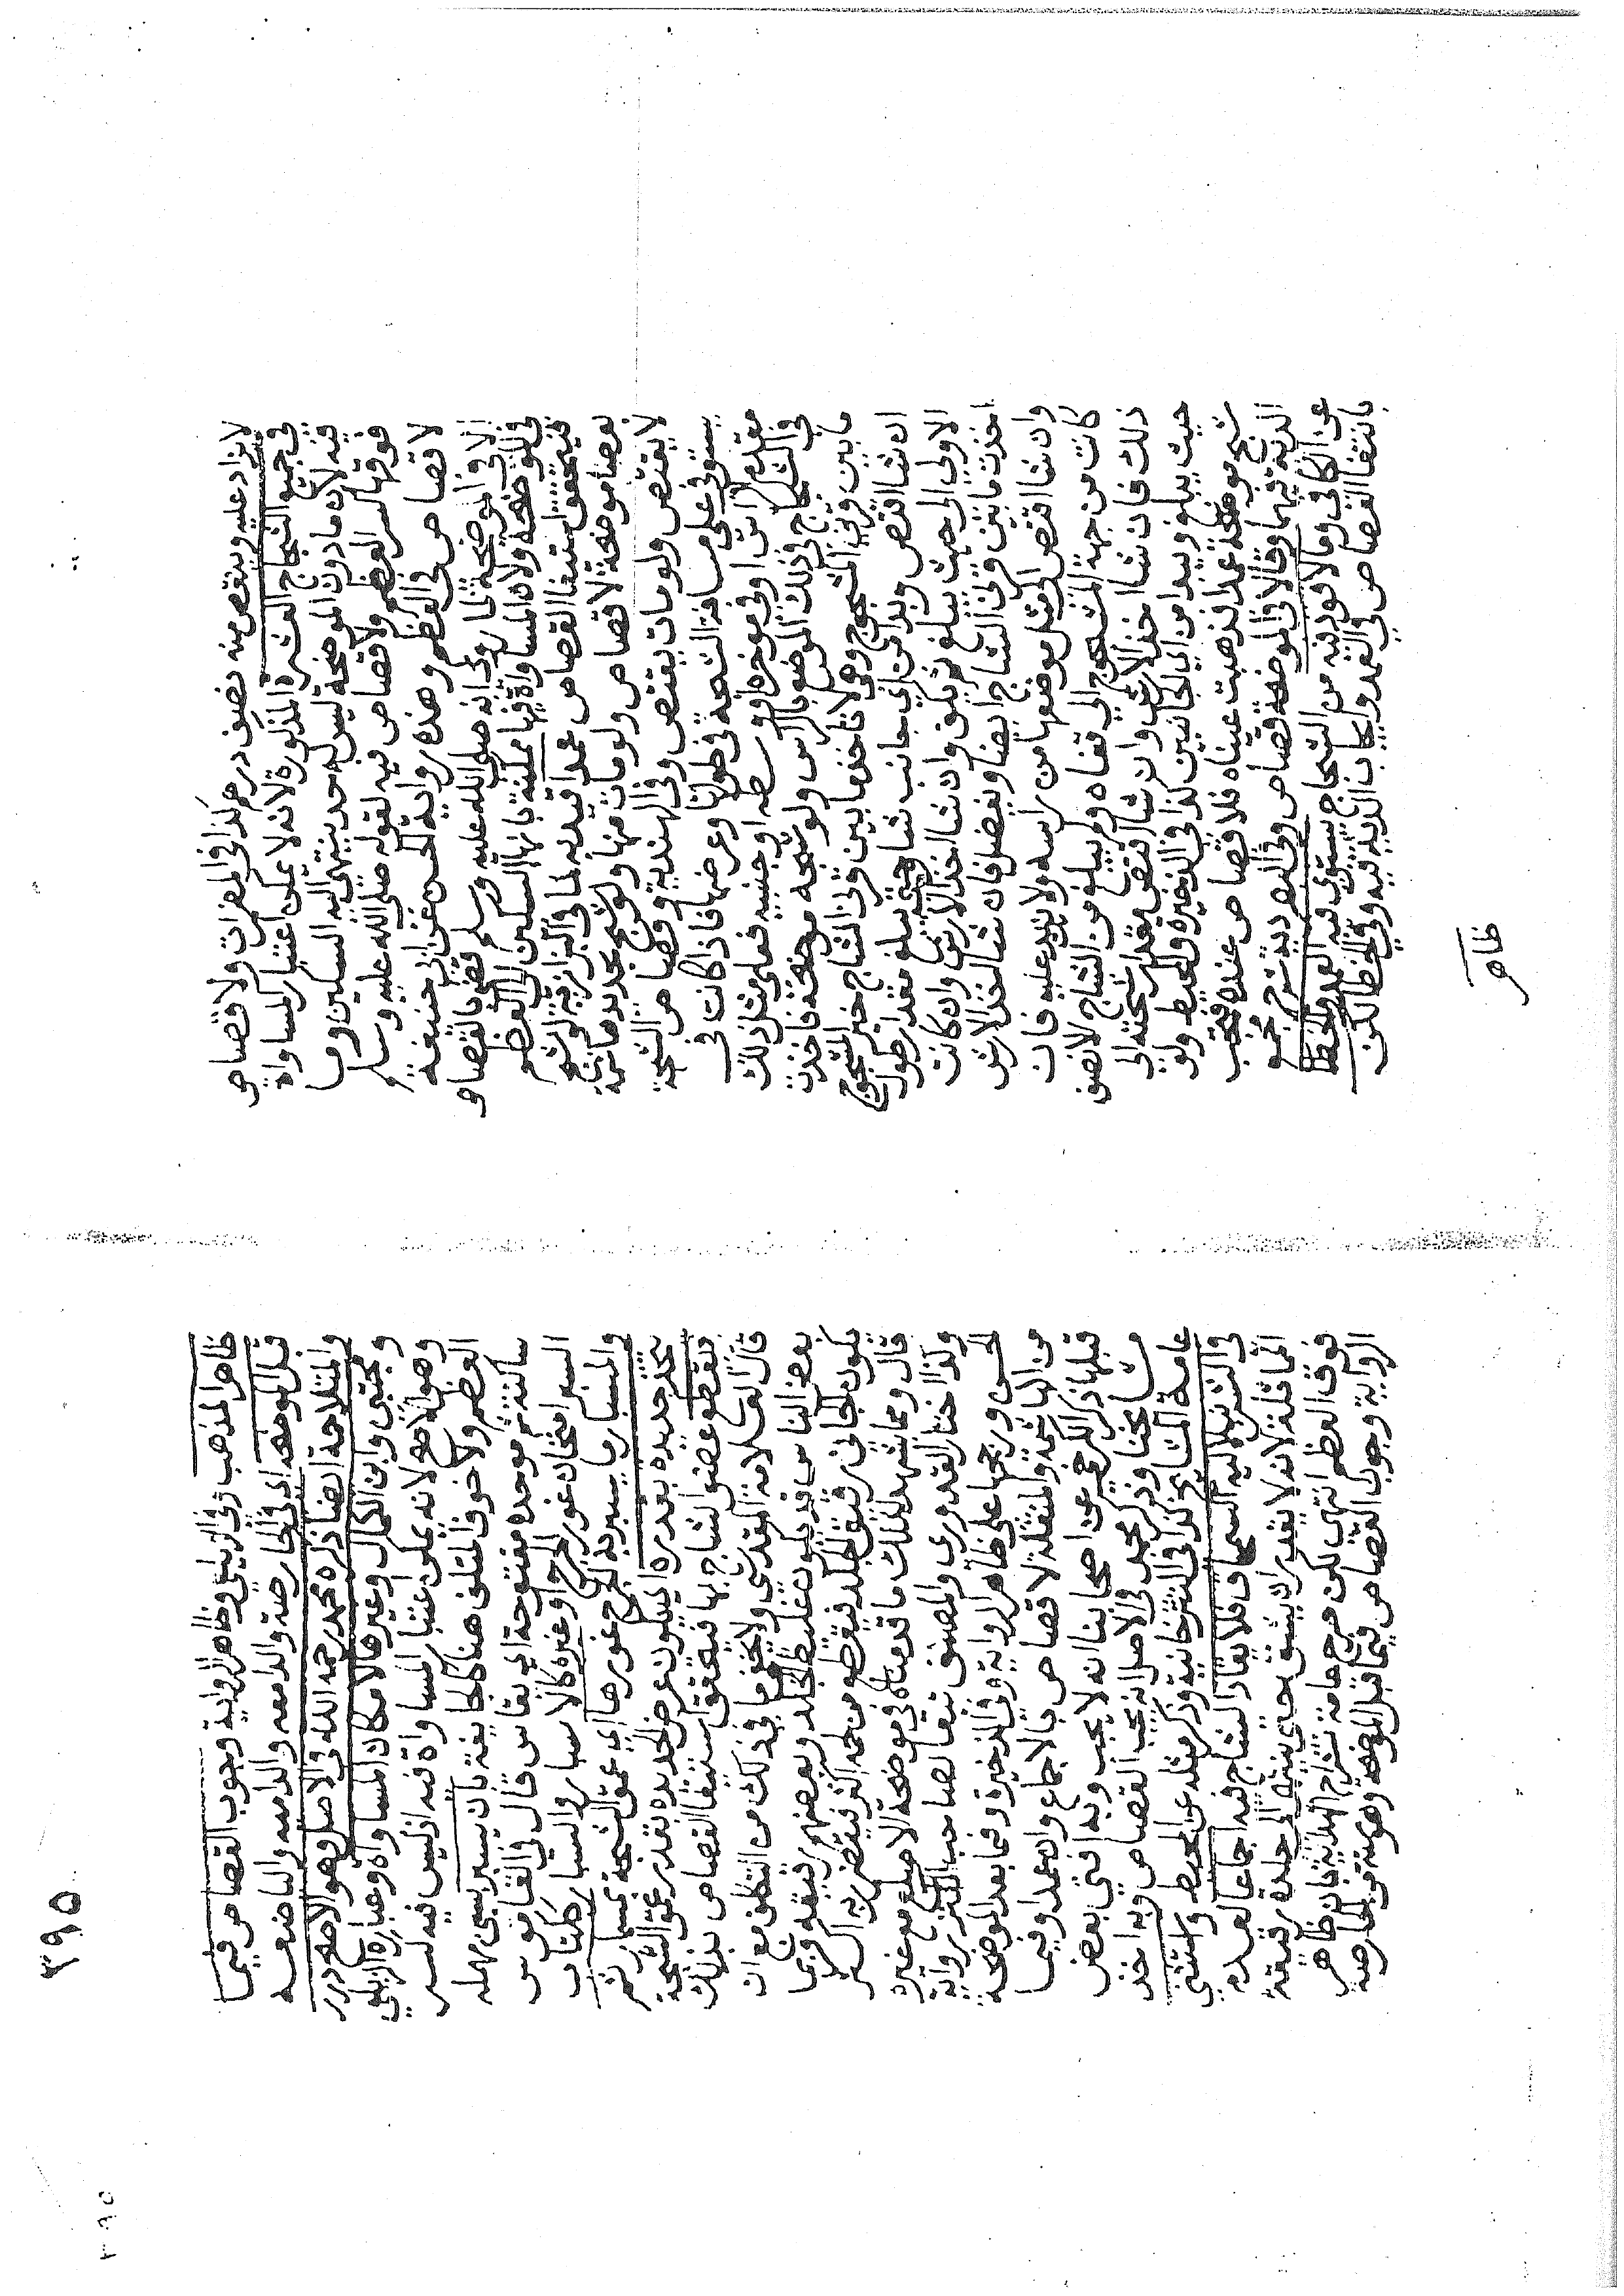 لا يزاد عليه وينقص منه نصف درهم كذا في المضمرات ولا قصاص
في جميع الشجاج العشرة المذكورة لانه لا يمكن اعتبار المساواة
فيه لان ما دون الموضحة ليس له حد ينتهي اليه السكين وما
فوقها كسر العظم ولا قصاص فيه لقوله صلى الله عليه وسلم
لا قصاص في العظم وهذه رواية الحسن عن ابي حنيفة
الا في الموضحة لما روي انه صلى الله عليه وسلم قضى بالقصاص
في الموضحة ولان المساواة فيها ممكنة بانهاء السكين الى العظم
فيتحقق استيفا القصاص عمدا قيد به لما في البزازية لو شج
بعصا موضحة لا قصاص ولو مات منها ولو شج بحديد هاشمة
لا يقتص ولو مات يقتص وفي الهندية وقصاص الشجة
يستوفي على مسافة الشجة في طولها وعرضها فاذا كانت في
مقدم الراس او في موخره او وسطه او جنبيه فعلى مثل ذلك
في الشجاج في ذلك الموضع بالراس ولو شجه موضحة فاخذت
ما بين قرني المشجوج وهي لا تاخذ ما بين قرني الشاج خير المشجوج
ان شا اقتص وبدا من اي جانب شا حتى يبلغ مقدار طول
الاولى الى حيث يبلغ ثم يكف وان شا اخذ الارش وان كانت
اخذت ما بين قرني الشاج ايضا ويفضل فان شا اخذ الارش
وان شا اقتص الى مثل موضعها من راسه ولا يزيد عليه فان
كانت من جهة المشجوج الى قفاه ولم يبلغ من الشاج الا نصف
ذلك فان شا اخذ الارش وان شا اقتص بمقدار شجته الى
حيث يبلغ ويبدا من اي الجانبين كذا في الذخيرة والمحيط ولو
شج موضحة عمدا فذهبت عيناه فلا قصاص عنده فتجب
الدية فيهما وقالا في الموضحة قصاص وفي البصر دية شرح مجمع
عن الكافي وما لا قود فيه من الشجاج يستوي فيه العمد والخطا
بانتفاء القصاص في العمد وايجاب الدية فيه وفي الخطا لكن
ظاهر
٣٩٥
ظاهر المذهب زيلعي وظاهر الرواية وجوب القصاص فيما
قبل الموضحه اي في الحارصة والدامعه والداميه والباضعه
والمتلاحمة ايضا ذكره محمد رحمه الله في الاصل وهو الاصح درر
ومجتبى وابن الكمال وغيرها لامكان المساواه وعبارة الزيلعي
وهو الاصح لانه يمكن اعتبار المساواة فيه اذ ليس فيه كسر
العظم ولا خوف التلف هنا كالجايفة بان يسبر بسين مهمله
ساكنه ثم موحده مفتوحة اي يقاس قال في القاموس
السبر امتحان غور الجرح وغيره كالاسبار والسبار ككتاب
والمسبار ما يسبر به الجرح غورها اي عمق الشجة بمسبار ثم
يتخذ حديده بعدره اي يكون عرض الحديده بقدر عمق الشجة
فيقطع عضو الشاج بها فيتحقق استيفا القصاص بذلك
قال العلامة المقدسي ولا يخفى ما في ذلك من التكلف مع ان
بعض الناس قد يكون غليظ الجلد وبعضهم رقيقه فربما
يكون الجاني رقيق الجلد فيقطع من لحمه اكثر فيتضرر به اكثر
قال ومما يشهد لذلك ما قدمناه في موضحة الاصلع مع غيره
ولذا اختار القدوري والمصنف تبعا لصاحب الكنز رواية
الحسن ورجحها على ظاهر الرواية وفي الذخيرة وفيما بعد الموضحة
من الهاشمة والمنقلة لا قصاص بالاجماع وان عمدا وفيما
قبلها ذكر الكرخي عن اصحابنا انه لا يجب وبه افتى بعض
مشايخنا وذكر محمد في الاصل انه يجب القصاص وبه اخذ
عامة المشايخ كذا في التترخانية وذكر مثله عن المحيط واستثنى
في الشرنبلالية السمحاق فلا يقاد الشاج فيه اجماعا لعدم
المماثلة لانه لا يقدر ان يشق حتى ينتهي الى جلدة رقيقة
فوق العظم انتهى لكن صرح عامة شراح الهداية بان ظاهر
الرواية وجوب القصاص فيما قبل الموضحه وهو ستة من الحارصة
٣٩٥